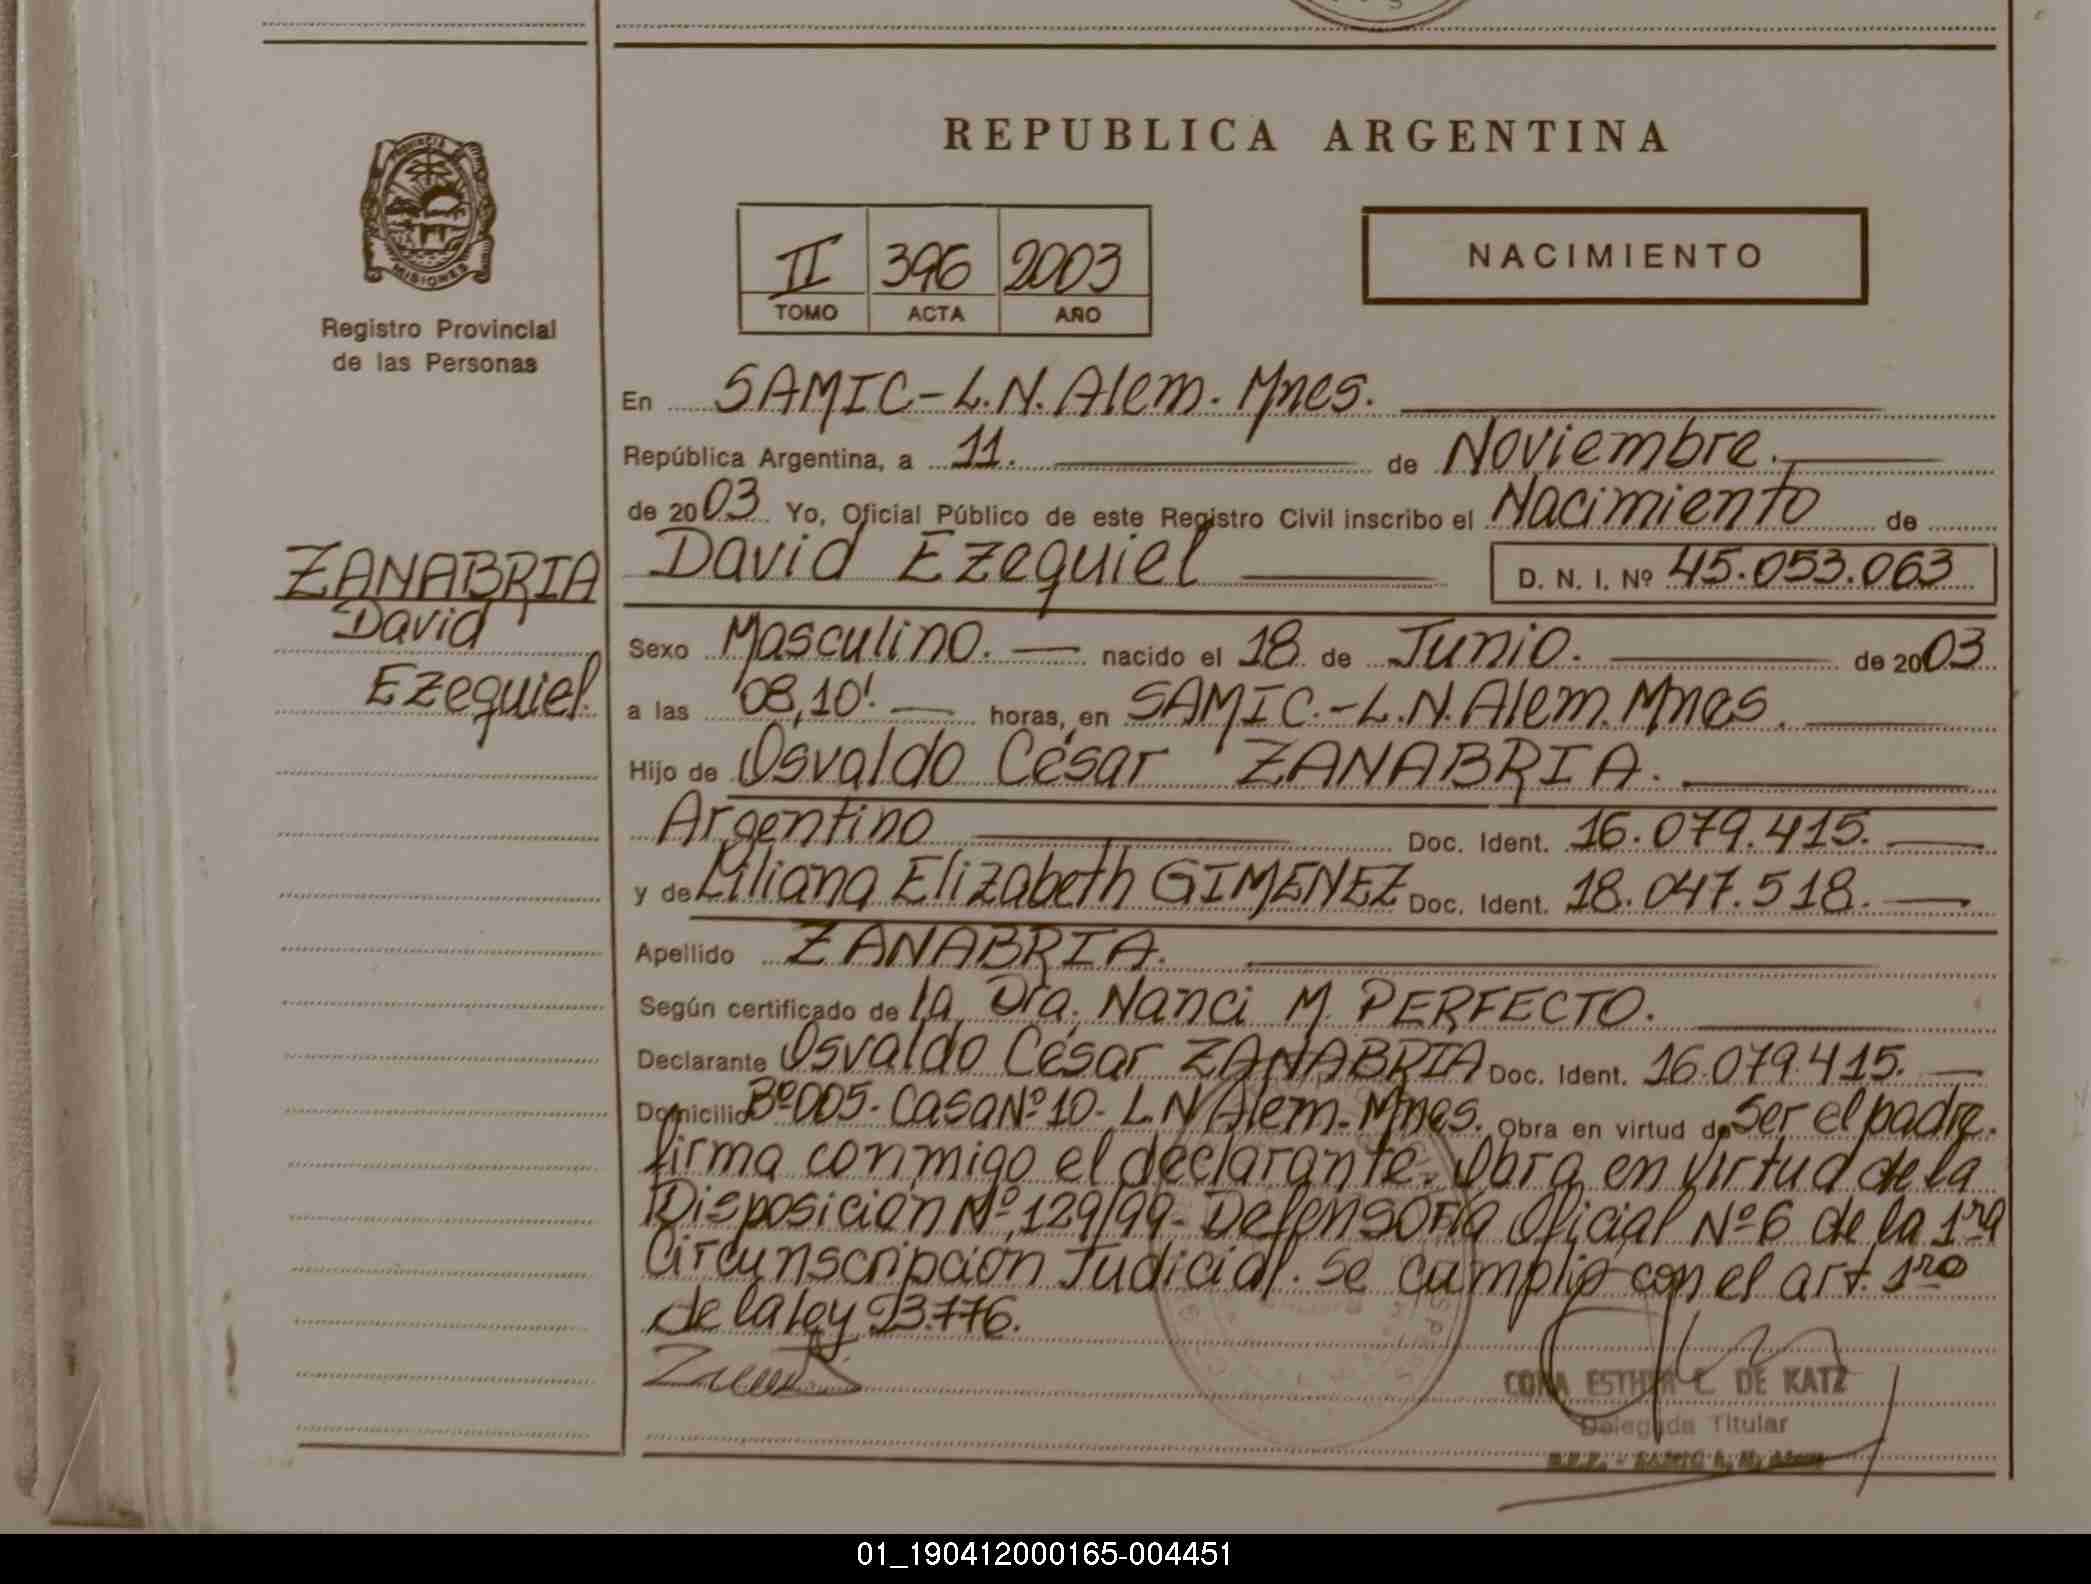 REPUBLICA ARGENTINA
PROVINCIA DE
MISIONES
Registro Provincial
de las Personas
II 396 2003
TOMO ACTA AÑO
NACIMIENTO
En SAMIC-L.N.Alem. Mnes.
República Argentina, a 11. de Noviembre.
de 2003 Yo, Oficial Público de este Registro Civil inscribo el Nacimiento de
David Ezequiel D. N. I. Nº 45.053.063
ZANABRIA
David
Ezequiel.
Sexo Masculino. nacido el 18 de Junio. de 2003
a las 08,10'. horas, en SAMIC.-L.N.Alem.Mnes.
Hijo de Osvaldo César ZANABRIA.
Argentino Doc. Ident. 16.079.415.
y de Liliana Elizabeth GIMENEZ Doc. Ident. 18.047.518.
Apellido ZANABRIA.
Según certificado de la Dra. Nanci M. PERFECTO.
Declarante Osvaldo César ZANABRIA Doc. Ident. 16.079.415.
Domicilio Bº005-Casa Nº10-L.N Alem-Mnes. Obra en virtud de ser el padre.
firma conmigo el declarante. Obra en virtud de la
Disposición Nº 129/99-Defensoría Oficial Nº 6 de la 1ra
Circunscripción Judicial. Se cumplió con el art. 1ro
de la Ley 23.776.
CORA ESTHER E. DE KATZ
Delegada Titular
01_190412000165-004451